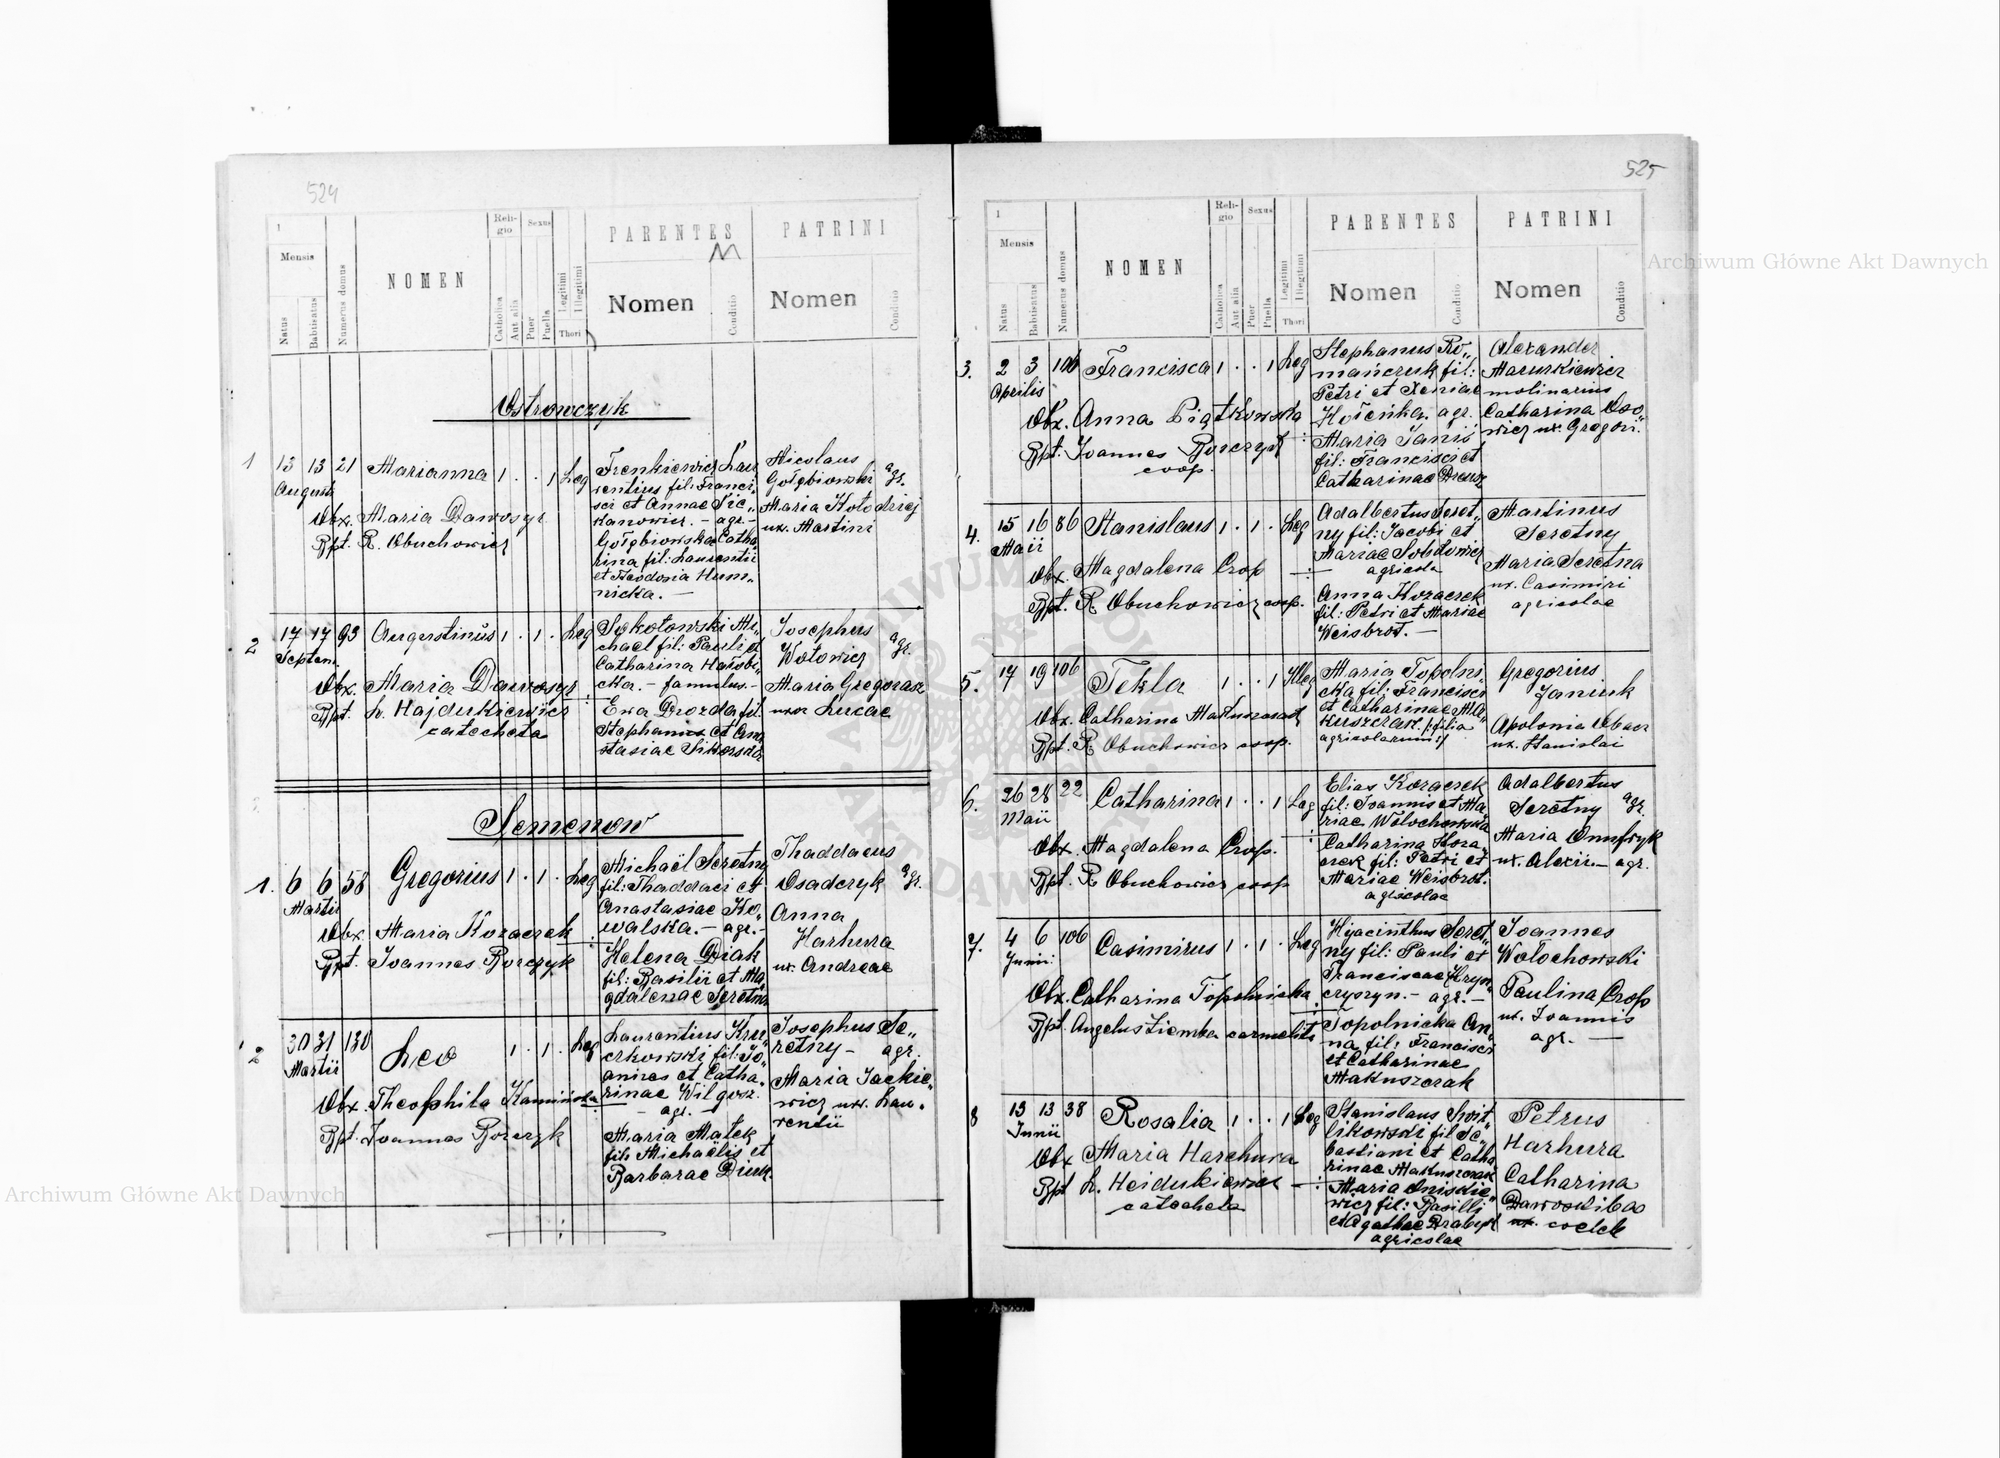 524
1
Mensis
Natus
Babtisatus
Numerus domus
NOMEN
Reli-
gio
Catholica
Aut alia
Sexus
Puer
Puella
Legitimi
Illegitimi
Thori
PARENTES
Nomen
Conditio
PATRINI
Nomen
Conditio
Ostrowczyk
1 13 13 21 Marianna 1 . . 1 Leg
Augusti
Obx. Maria Dawosyr
Bpt. R. Obuchowicz
Frenkiewicz Lau
rentius fil: Franci„
sci et Annae Sie„
kanowicz. – agr –
Gołębiowska Catha
rina fil: Laurentii
et Theodosia Hum„
nicka. –
Nicolaus
Gołębiowski agr.
Maria Kołodziej
ux. Martini
2 17 17 93 Augustinus 1 . 1 . Leg
Septem.
Obx. Maria Dawosyr
Bpt. L. Hajdukiewicz
catecheta
Sokołowski Mi„
chael fil: Pauli et
Catharina Hałobi„
cka. – famulus. –
Eva Drozda fil.
Stephanus et Ana
stasiae Sikorska
Josephus
Wołowicz agr.
Maria Gregorasz
uxor Lucae
Semenow
1. 6 6 58 Gregorius 1 . 1 . Leg
Martii
Obx. Maria Kozaczek
Bpt. Joannes Borczyk
Michaël Seretny
fil: Thaddaei et
Anastasiae Ko„
walska. – agr. –
Helena Diak
fil: Basilii et Ma„
gdalenae Seretna
Thaddaeus
Osadczyk agr.
Anna
Harhura
ux. Andreae
2 30 31 130 Leo 1 . 1 . Leg
Martii
Obx. Theophila Kamińska
Bpt. Joannes Borczyk
Laurentius Kru„
czkowski fil: Jo„
annes et Catha„
rinae Wilgosz.
– agr. –
Maria Małek
fil: Michaëlis et
Barbarae Dium.
Josephus Se„
retny – agr.
Maria Jackie„
wicz ux. Lau„
rentii
525
1
Mensis
Natus
Babtisatus
Numerus domus
NOMEN
Reli-
gio
Catholica
Aut alia
Sexus
Puer
Puella
Legitimi
Illegitimi
Thori
PARENTES
Nomen
Conditio
PATRINI
Nomen
Conditio
3. 2 3 106 Francisca 1 . . 1 Leg
Aprilis
Obx. Anna Piątkowska
Bpt. Joannes Borczyk
coop.
Stephanus Ro„
mańczuk fil:
Petri et Xeniae
Hołeńka. agr.
Maria Janis
fil: Francisci et
Catharinae
Alexander
Mazurkiewicz
molinarius
Catharina Oso„
wicz ux. Gregori.
4. 15 16 86 Stanislaus 1 . 1 . Leg
Maii
Obx. Magdalena Crop
Bpt. R. Obuchowicz coop.
Adalbertus Seret„
ny fil: Jacobi et
Mariae
agricola
Anna Kozaczek
fil: Petri et Mariae
Weisbrot. –
Martinus
Seretny
Maria Seretna
ux. Casimiri
agricolae
5. 17 19 106 Tekla 1 . . 1 Illeg
Obx. Catharina Makuszczak
Bpt. R. Obuchowicz coop.
Maria Topolni„
cka fil: Francisci
et Catharinae Ma„
kuszczak /:filia
agricolarum:/
Gregorius
Janiuk
Apolonia
ux. Stanislai
6. 26 28 22 Catharina 1 . . 1 Leg
Maii
Obx. Magdalena Crop.
Bpt. R Obuchowicz coop
Elias Kozaczek
fil: Joannis et Ma
riae Wołochowska
Catharina Koza„
czek fil: Petri et
Mariae Weisbrot.
agricolae
Adalbertus
Seretny agr.
Maria Onufryk
ux. Alexii – agr.
7. 4 6 106 Casimirus 1 . 1 . Leg
Junii
Obx. Catharina Topolnicka
Bpt. Angelus Ziemba carmelita
Hyacinthus Seret„
ny fil: Pauli et
Franciscae Hryn„
czyszyn. – agr. –
Topolnicka An„
na fil: Francisci
et Catharinae
Makuszczak
Joannes
Wołochowski
Paulina Crop
ux. Joannis
agr. –
8 13 13 38 Rosalia 1 . . 1 Leg
Junii
Obx Maria Harchura
Bpt L. Heidukiewicz
catecheta
Stanislaus Swit„
likowski fil Se„
bastiani et Catha
rinae Makuszczak
Maria Aniskie„
wicz fil: Basilli
et Agathae
agricolae
Petrus
Harhura
Catharina
ux. coeleb
Archiwum Główne Akt Dawnych
Archiwum Główne Akt Dawnych